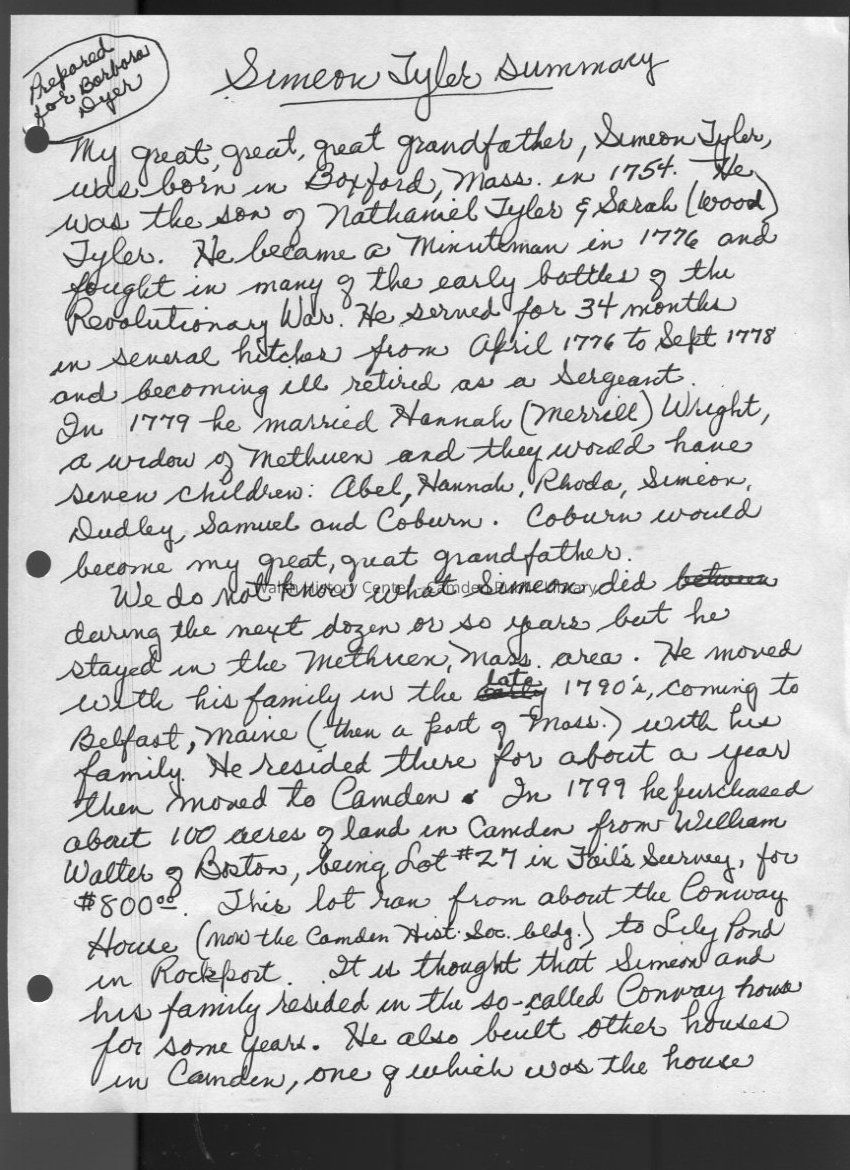 Prepared
for Barbara
Dyer
Simeon Tyler Summary
My great, great, great grandfather, Simeon Tyler,
was born in Boxford, Mass. in 1754. He
was the son of Nathaniel Tyler & Sarah (Wood)
Tyler. He became a Minuteman in 1776 and
fought in many of the early battles of the
Revolutionary War. He served for 34 months
in several hitches from April 1776 to Sept 1778
and becoming ill retired as a Sergeant.
In 1779 he married Hannah (Merrill) Wright,
a widow of Methuen and they would have
seven children: Abel, Hannah, Rhoda, Simeon,
Dudley, Samuel and Coburn. Coburn would
become my great, great grandfather.
We do not know what Simeon did between
Walsh History Center - Camden Public Library
during the next dozen or so years but he
stayed in the Methuen, Mass. area. He moved
with his family in the early late 1790's, coming to
Belfast, Maine (then a part of Mass.) with his
family. He resided there for about a year
then moved to Camden. In 1799 he purchased
about 100 acres of land in Camden from William
Walter of Boston, being Lot #27 in Fails Survey, for
$800.00. This lot ran from about the Conway
House (now the Camden Hist. Soc. bldg.) to Lily Pond
in Rockport. It is thought that Simeon and
his family resided in the so-called Conway house
for some years. He also built other houses
in Camden, one of which was the house